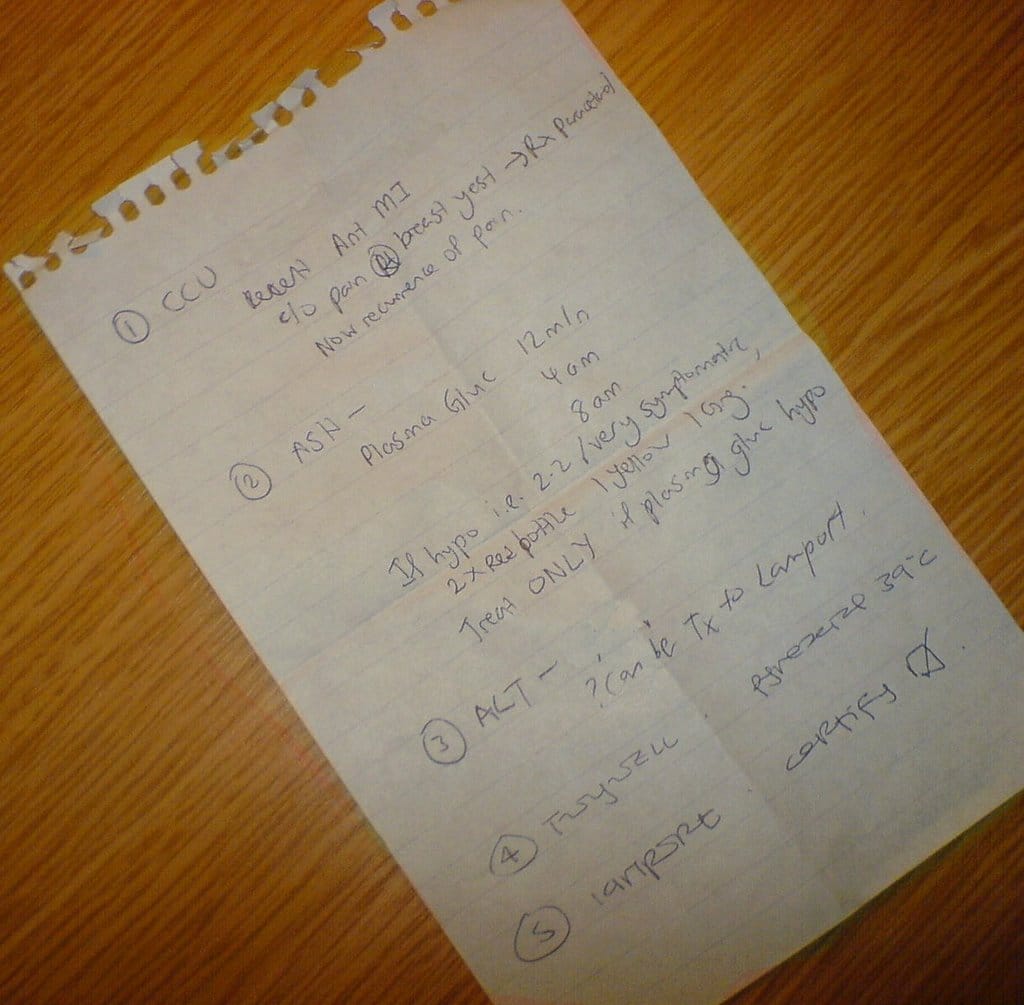 ① CCU
Recent Ant MI
c/o pain Ⓡ breast yest → Rx paracetamol
Now recurrence of pain.
② ASH -
Plasma Gluc 12 m/n
4 am
8 am
If hypo i.e. 2.2 / very symptomatic,
2 x Red bottle 1 yellow 1 Grey.
Treat ONLY if plasma gluc hypo
③ ALT -
? Can be Tx to Lamport.
④ Twywell Pyrexial 39°C
⑤ Lamport certify